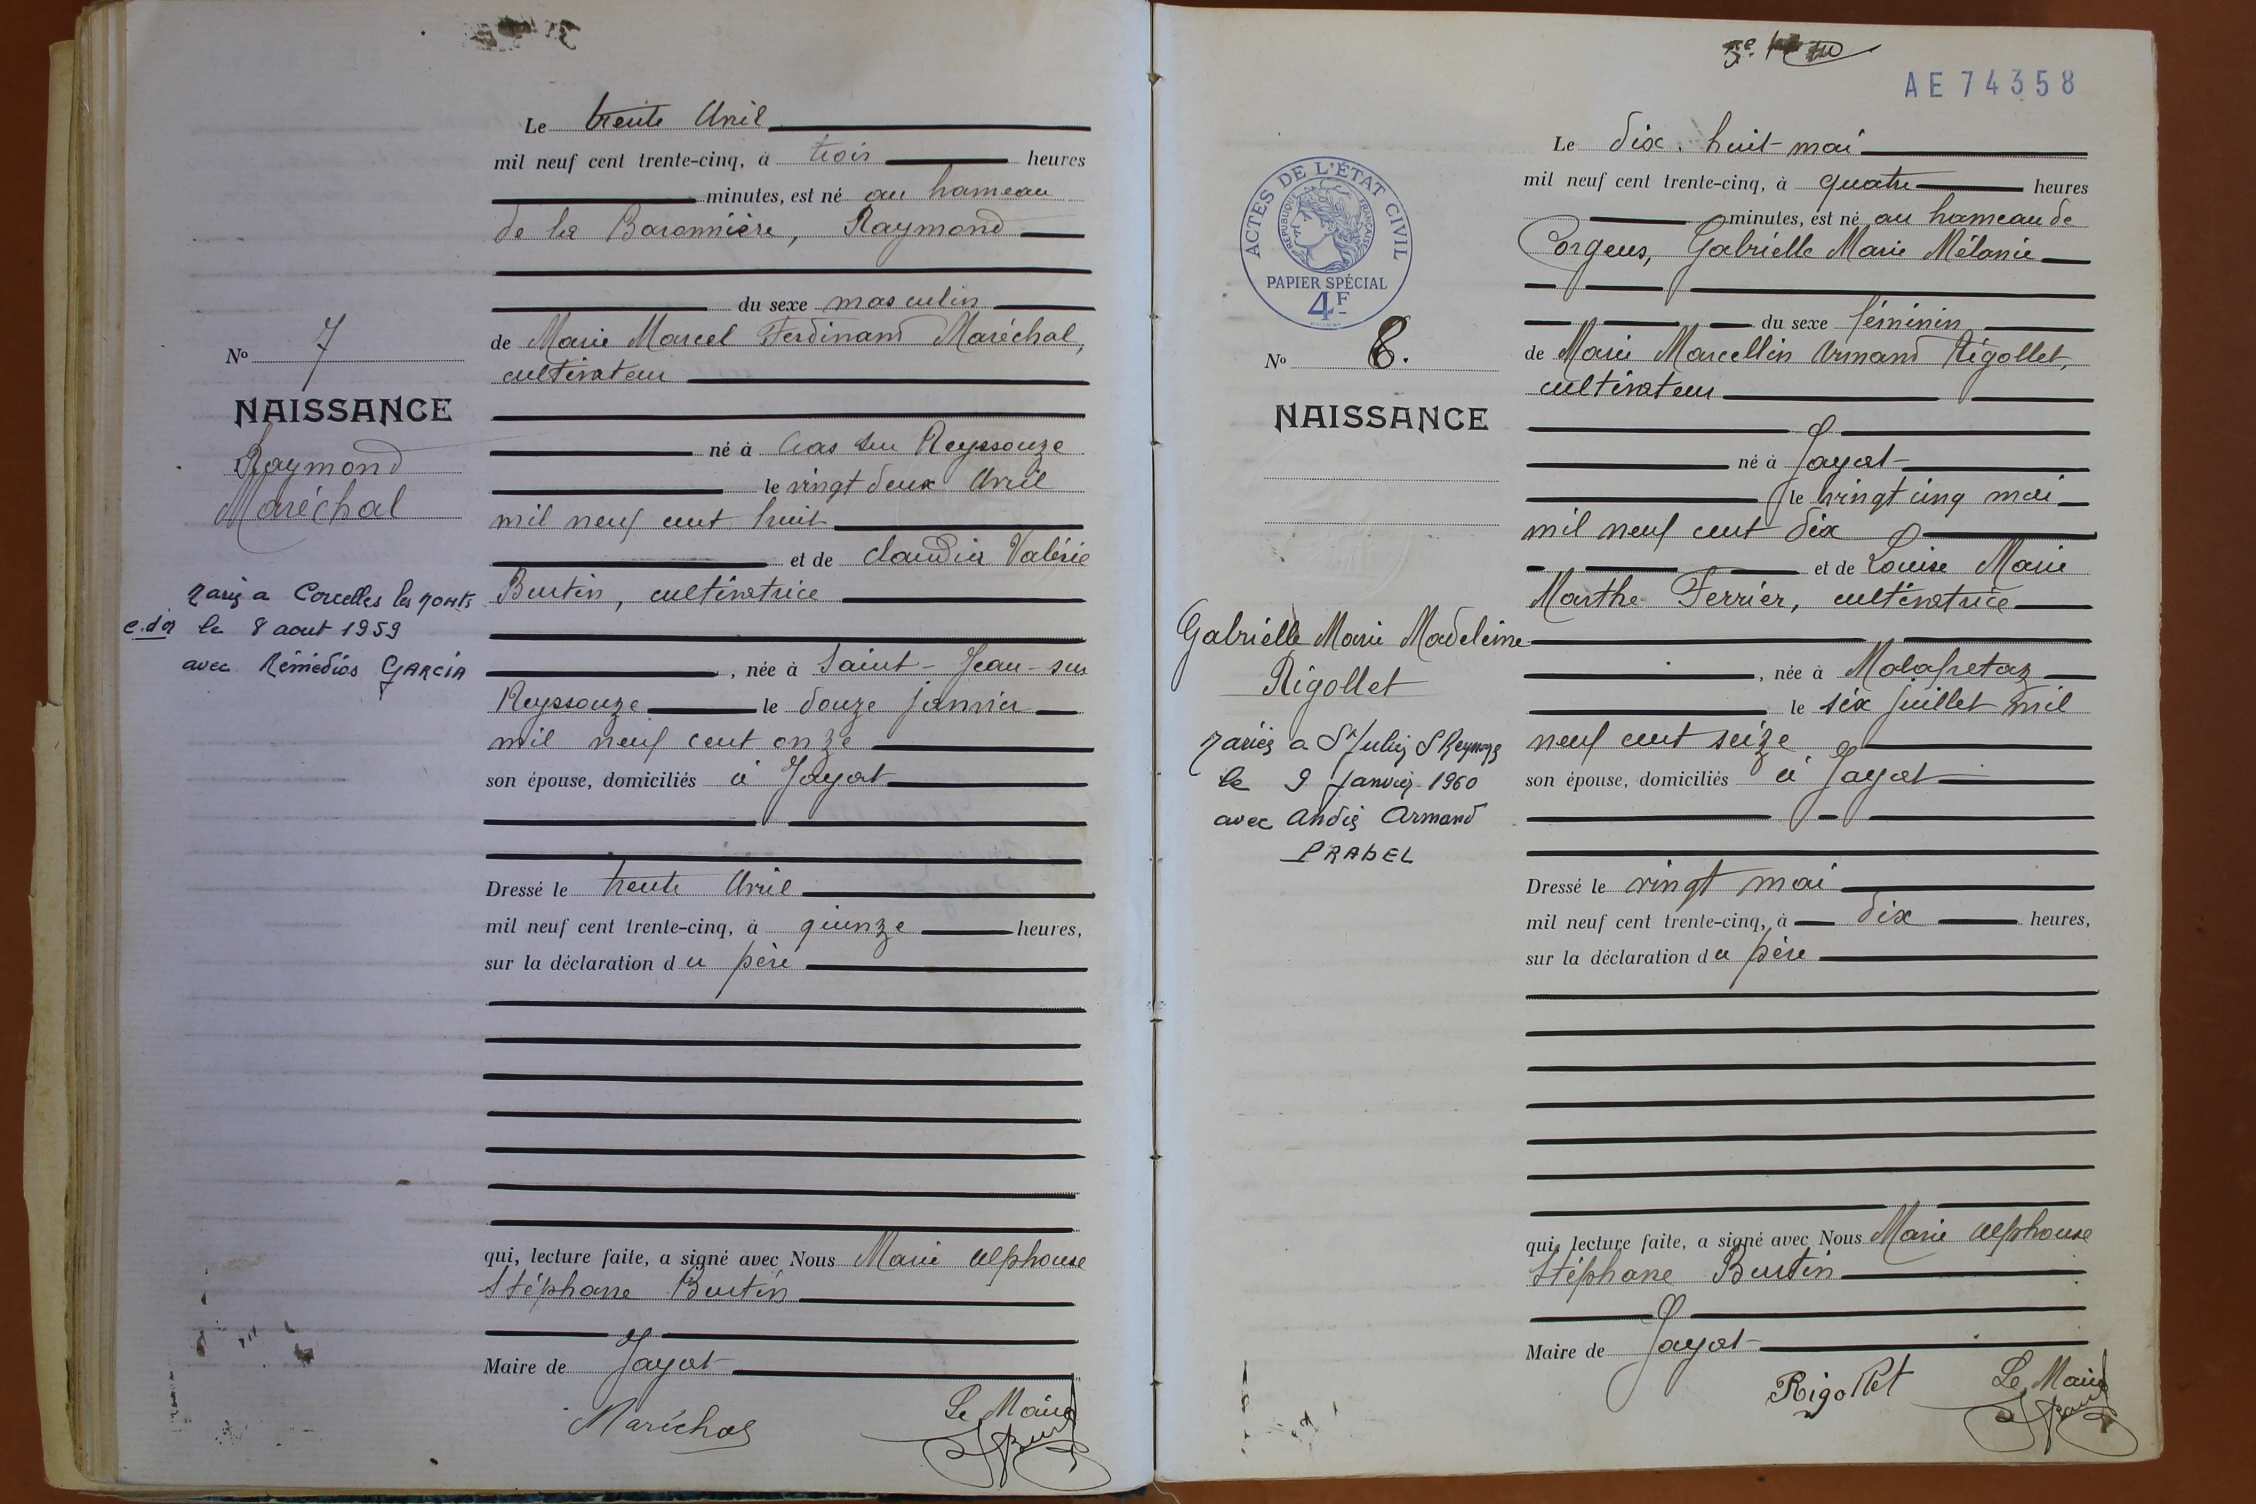 Le trente Avril
mil neuf cent trente-cinq, à trois heures
minutes, est né au hameau
de la Baronnière, Raymond
du sexe masculin
No 7
de Marie Marcel Ferdinand Maréchal,
cultivateur
NAISSANCE
Raymond
Maréchal
né à Cras sur Reyssouze
le vingt deux Avril
mil neuf cent huit
et de Claudia Valérie
Burtin, cultivatrice
Marié a Corcelles les Monts
C. d'or le 8 aout 1959
avec Rémédios GARCIA
, née à Saint-Jean-sur
Reyssouze le douze janvier
mil neuf cent onze
son épouse, domiciliés à Jayat
Dressé le trente Avril
mil neuf cent trente-cinq, à quinze heures,
sur la déclaration du père
qui, lecture faite, a signé avec Nous Marie Alphonse
Stéphane Burtin
Maire de Jayat
Maréchal
Le Maire
AE 74358
Le dix-huit mai
mil neuf cent trente-cinq, à quatre heures
minutes, est né au hameau de
Corgeus, Gabrielle Marie Mélanie
ACTES DE L'ÉTAT CIVIL
RÉPUBLIQUE FRANÇAISE
PAPIER SPÉCIAL
4F
du sexe féminin
No 8.
de Marie Marcellin Armand Rigollet,
cultivateur
NAISSANCE
né à Jayat
le vingt cinq mai
mil neuf cent dix
et de Louise Marie
Marthe Ferrier, cultivatrice
Gabrielle Marie Madeleine
Rigollet
Mariée a St Julien S Reyssouze
le 9 Janvier 1960
avec André Armand
PRADEL
, née à Malafretaz
le six juillet mil
neuf cent seize
son épouse, domiciliés à Jayat
Dressé le vingt mai
mil neuf cent trente-cinq, à dix heures,
sur la déclaration du père
qui, lecture faite, a signé avec Nous Marie Alphonse
Stéphane Burtin
Maire de Jayat
Rigollet
Le Maire